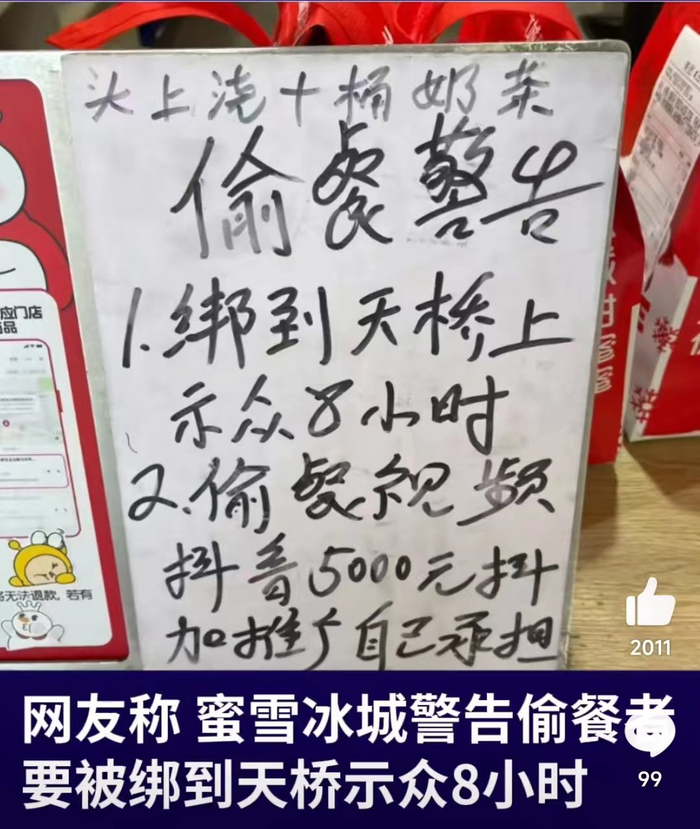 头上浇十桶奶茶
偷餐警告
1.绑到天桥上
示众8小时
2.偷餐视频
抖音5000元抖
加推广自己承担
应门店
品
无法退款,若有
蜜
蜜
2011
网友称 蜜雪冰城警告偷餐者
99
要被绑到天桥示众8小时